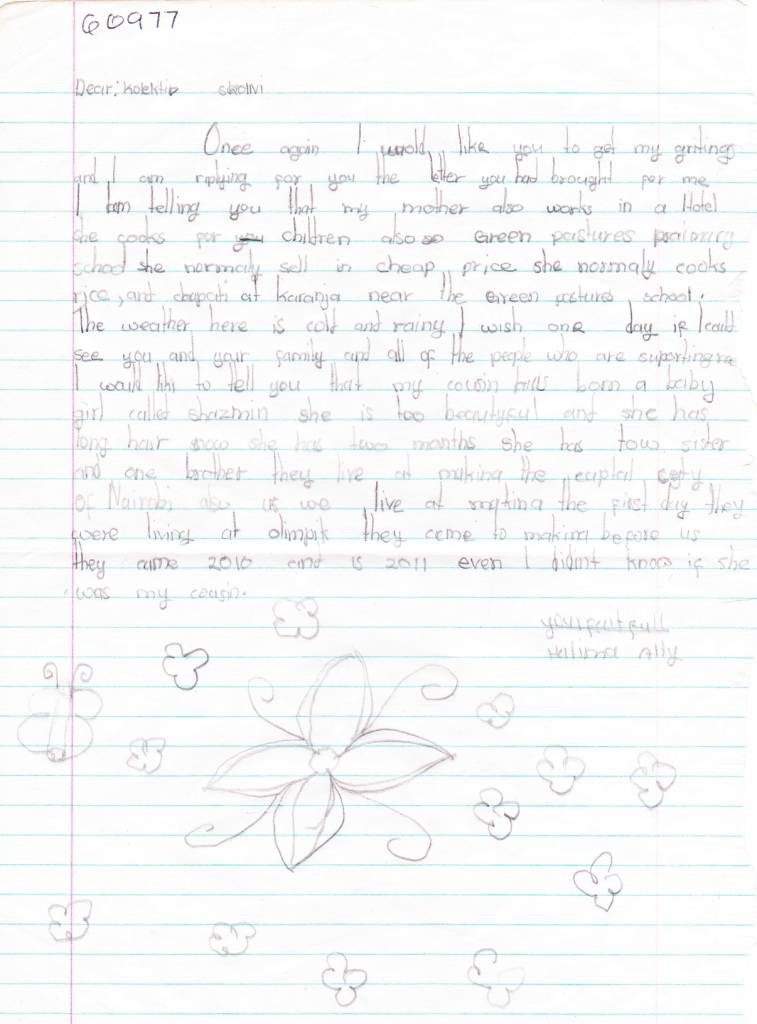 60977
Dear: kolektiv skolni
Once again I would like you to get my gritings
and I am riplying for you the letter you had brought for me
I am telling you that my mother also works in a Hotel
she cooks for you children also so Green pastures praimary
school she normaly sell in cheap price she normaly cooks
rice, and chapati at Karanja near the Green pastures school.
The weather here is cold and rainy I wish one day if I could
see you and your family and all of the people who are suporting me
I would like to tell you that my cousin born a baby
girl called shazmin she is too beautyful and she has
long hair now she has two months she has tow sister
and one brother they live at making the capital
of Nairobi also us we live at making the first day they
were living at olimpik they came to making before us
they came 2010 and is 2011 even I didint know if she
was my cousin.
your faitfull
Halima Ally